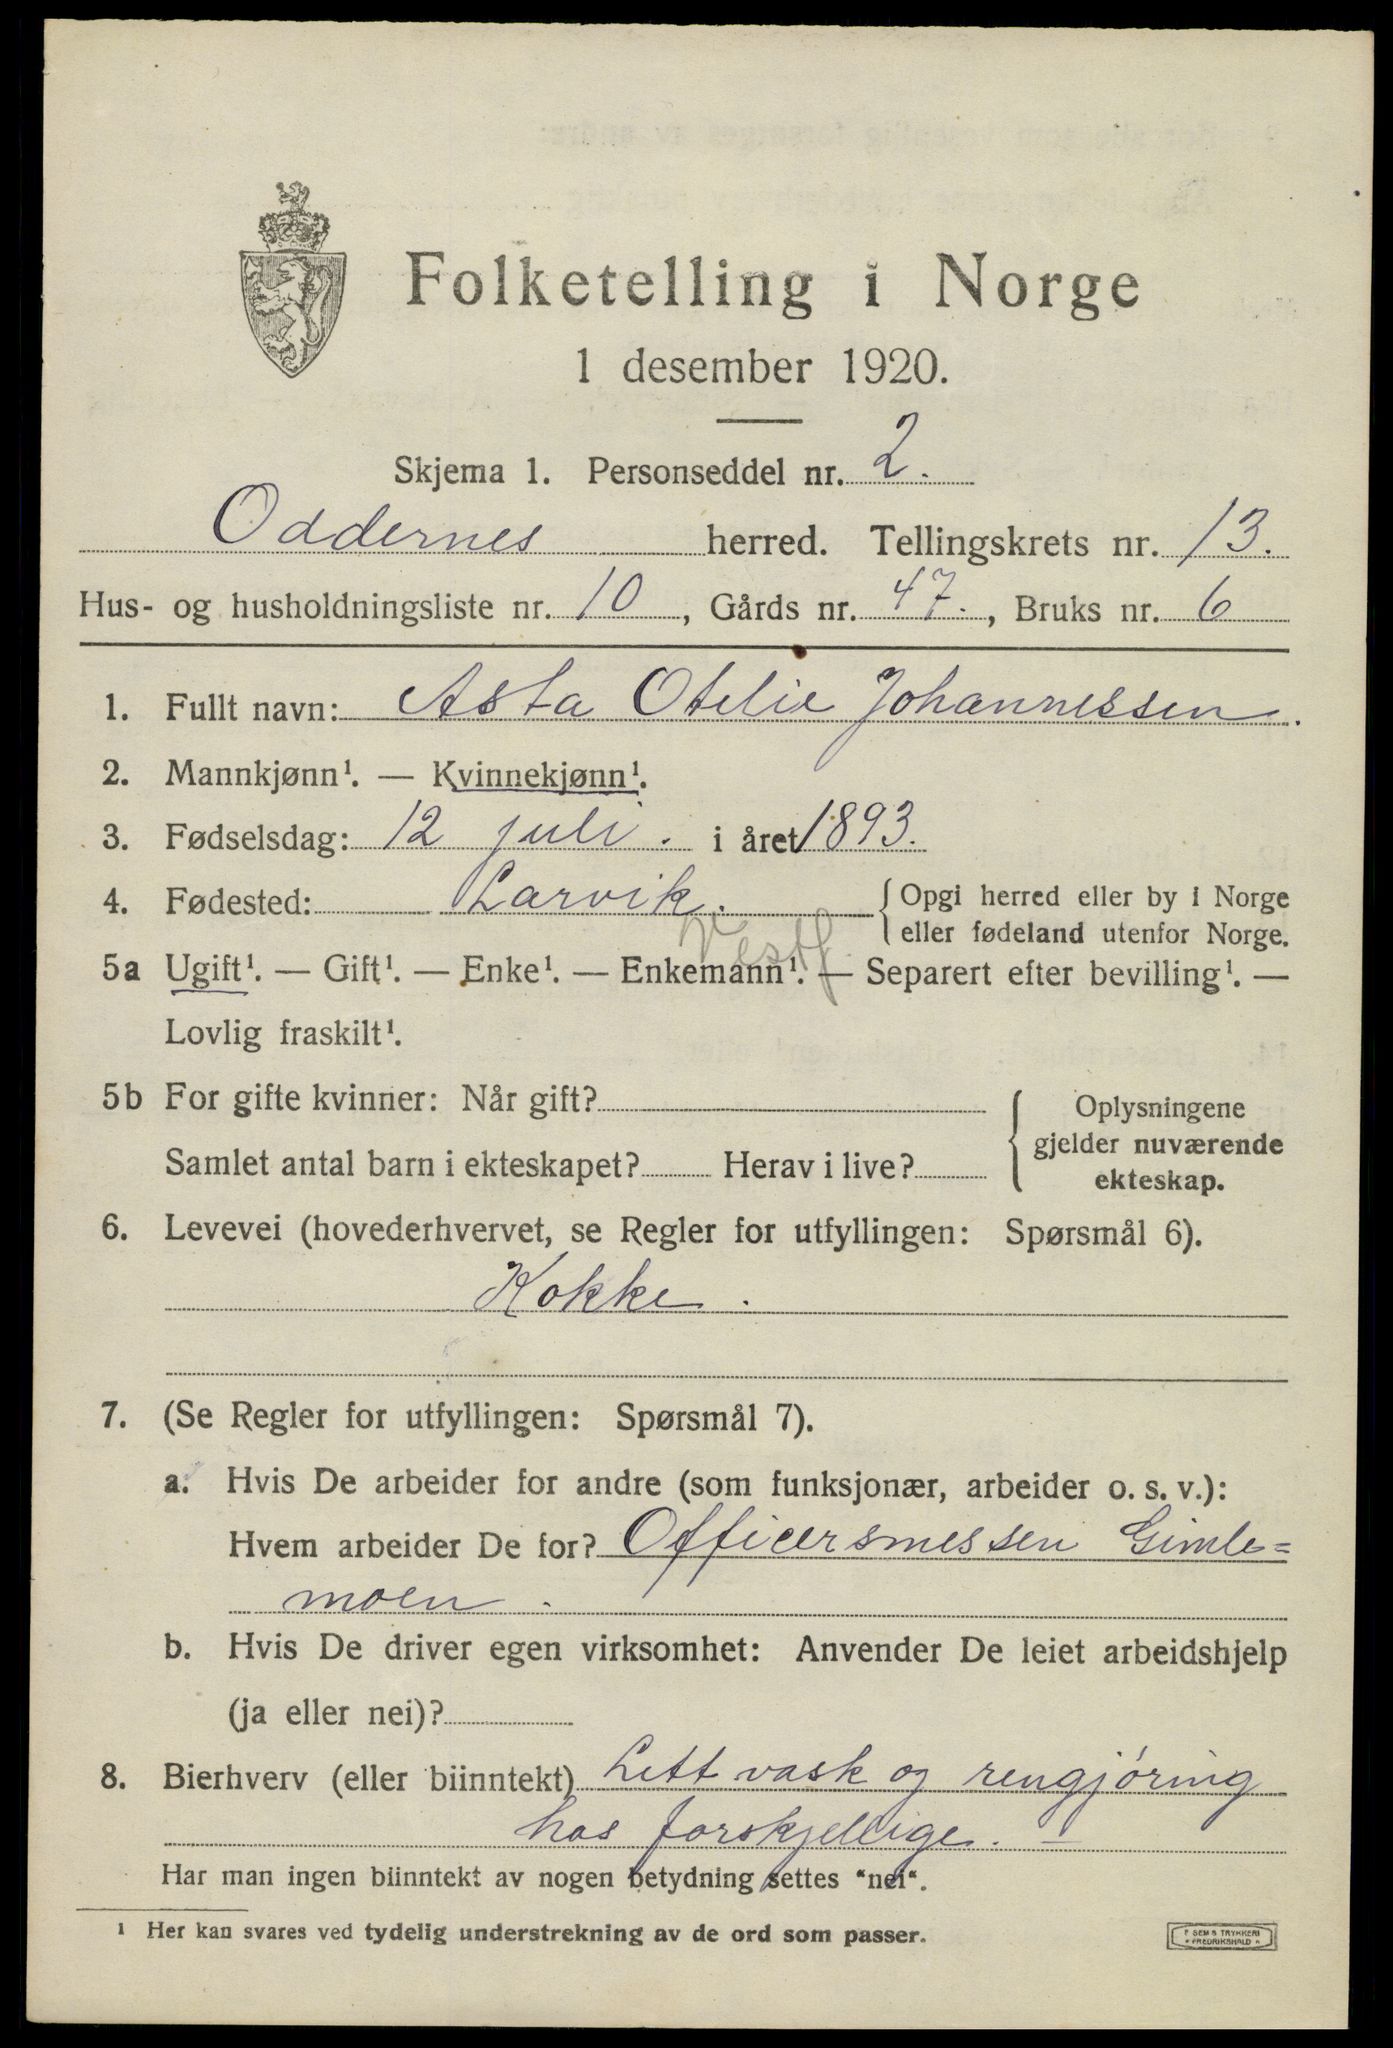 Folketelling i Norge
1 desember 1920.
Skjema 1. Personseddel nr. 2.
Oddernes herred. Tellingskrets nr. 13.
Hus- og husholdningsliste nr. 10, Gårds nr. 47., Bruks nr. 6
1. Fullt navn: Asta Otelie Johannessen.
2. Mannkjønn¹. — Kvinnekjønn¹.
3. Fødselsdag: 12 juli. i året 1893.
4. Fødested: Larvik. { Opgi herred eller by i Norge
eller fødeland utenfor Norge.
Vestf.
5a Ugift¹. — Gift¹. — Enke¹. — Enkemann¹. — Separert efter bevilling¹. —
Lovlig fraskilt¹.
5b For gifte kvinner: Når gift?
Samlet antal barn i ekteskapet? Herav i live?
Oplysningene
gjelder nuværende
ekteskap.
6. Levevei (hovederhvervet, se Regler for utfyllingen: Spørsmål 6).
Kokke.
7. (Se Regler for utfyllingen: Spørsmål 7).
a. Hvis De arbeider for andre (som funksjonær, arbeider o. s. v.):
Hvem arbeider De for? Officersmessen Gimle=
moen.
b. Hvis De driver egen virksomhet: Anvender De leiet arbeidshjelp
(ja eller nei)?
8. Bierhverv (eller biinntekt) Lett vask og rengjøring
hos forskjellige. —
Har man ingen biinntekt av nogen betydning settes "nei".
¹ Her kan svares ved tydelig understrekning av de ord som passer.
F SEM S TRYKKERI
FREDRIKSHALD